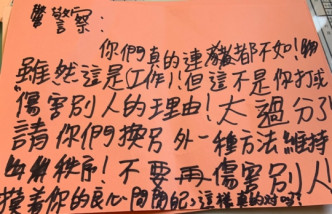 警察:
你們真的連豬都不如!
雖然這是(工作)!但這不是你打或
傷害別人的理由!太過分了
請你們換另外一種方法維持
秩序!不要再傷害別人
摸着你的良心問問自己,這樣真的對嗎?